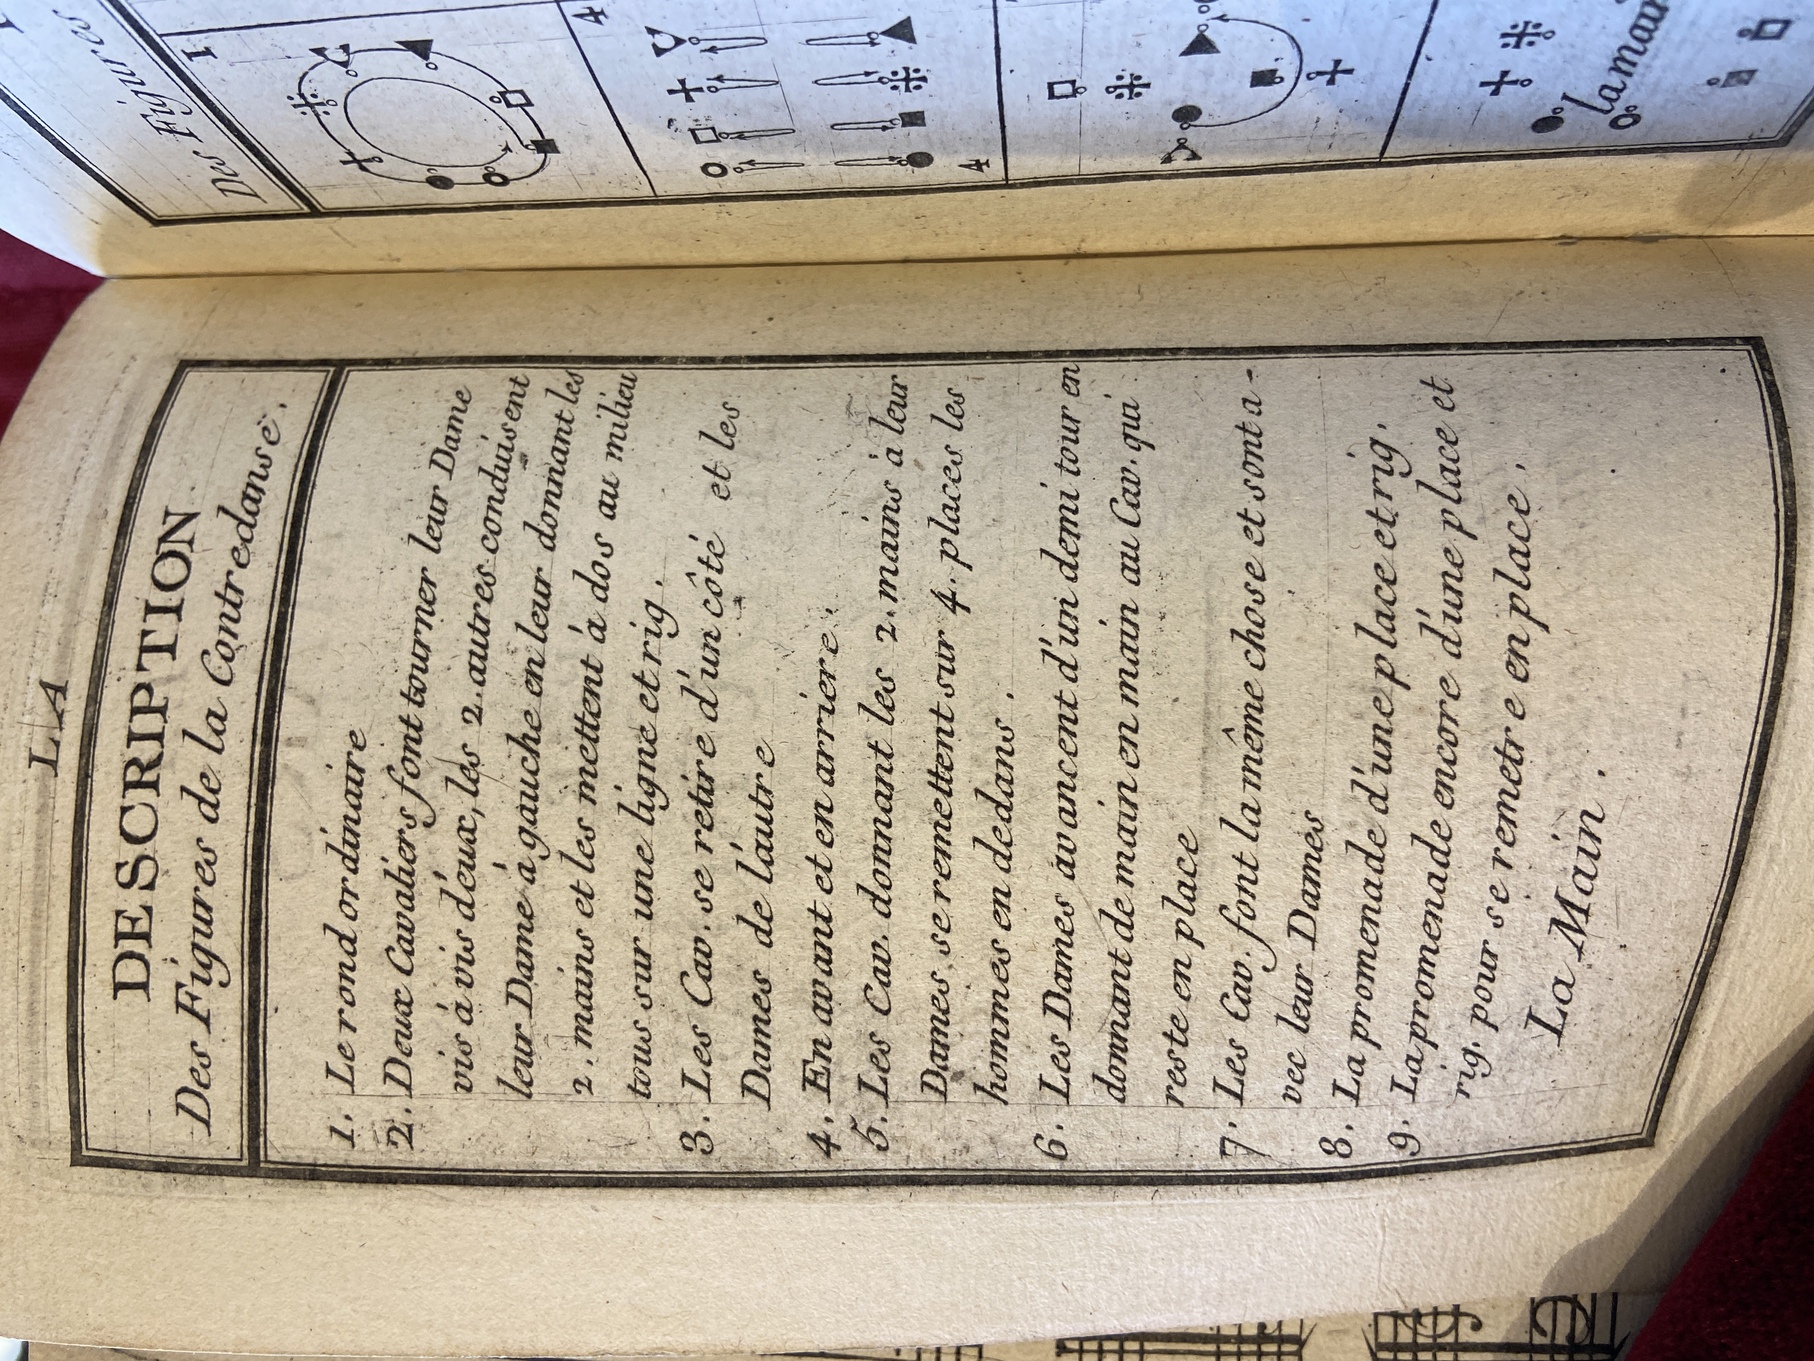 LA
DESCRIPTION
Des Figures de la Contredanse.
1. Le rond ordinaire
2. Deux Cavaliers font tourner leur Dame
vis á vis d'eux, les 2. autres conduisent
leur Dame á gauche en leur donnant les
2. mains et les mettent á dos au milieu
tous sur une ligne et rig.
3. Les Cav. se retire d'un côté et les
Dames de l'autre
4. En avant et en arriere.
5. Les Cav. donnant les 2. mains à leur
Dames se remettent sur 4. places les
hommes en dedans.
6. Les Dames avancent d'un demi tour en
donnant de main en main au Cav. qui
reste en place
7. Les Cav. font la même chose et sont a-
vec leur Dames
8. La promenade d'une place et rig.
9. La promenade encore d'une place et
rig. pour se remetre en place.
La Main.
Des Figures
1
4
4
la main